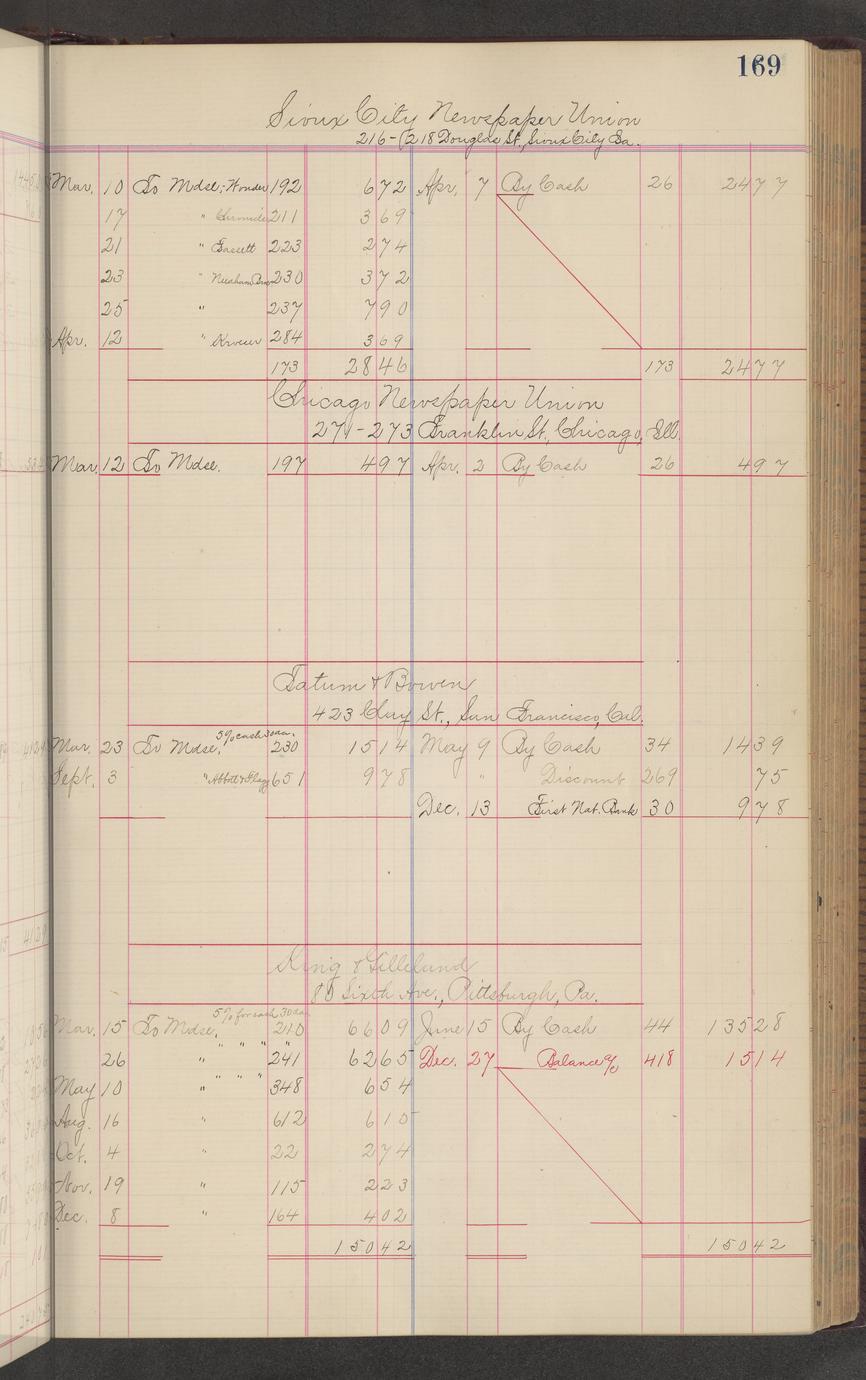 169
Sioux City Newspaper Union
216-218 Douglas St., Sioux City Ia.
Mar. 10 To Mdse; Wonder 192 672 Apr. 7 By Cash 26 2477
17 " Chronicle 211 369
21 " Gassett 223 274
23 " 230 372
25 " 237 790
Apr. 12 " 284 369
173 2846 173 2477
Chicago Newspaper Union
271-273 Franklin St., Chicago, Ill.
Mar. 12 To Mdse. 197 497 Apr. 2 By Cash 26 497
Tatum & Bowen
423 Clay St., San Francisco, Cal.
5% cash 30 da.
Mar. 23 To Mdse, 230 1514 May 9 By Cash 34 1439
Sept. 3 " Abbott & Flagg 651 978 " Discount 269 75
Dec. 13 First Nat. Bank 30 978
King & Gilleland
80 Sixth Ave., Pittsburgh, Pa.
5% for cash 30 da.
Mar. 15 To Mdse, 210 6609 June 15 By Cash 44 13528
" " " "
26 " 241 6265 Dec. 27 Balance % 418 1514
" " "
May 10 " 348 654
Aug. 16 " 612 615
Oct. 4 " 22 274
Nov. 19 " 115 223
Dec. 8 " 164 402
15042 15042